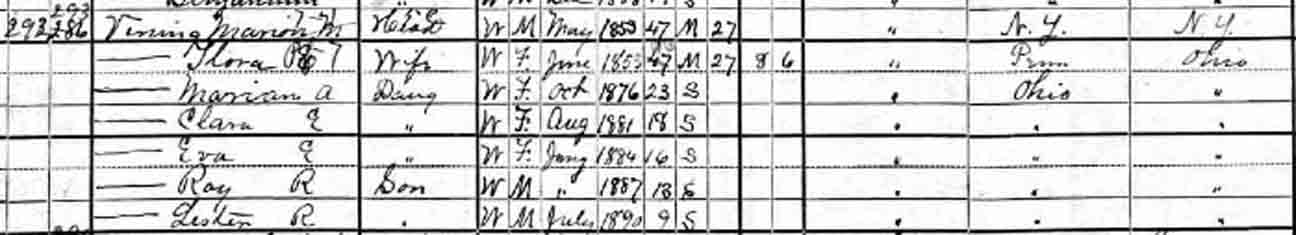 292 286 Vining Marion M Head W M May 1853 47 M 27 " N.Y. N.Y.
—— Flora E Wife W F June 1853 47 M 27 8 6 " Penn Ohio
—— Marian A Daug W F Oct 1876 23 S " Ohio "
—— Clara E " W F Aug 1881 18 S " " "
—— Eva E " W F Jany 1884 16 S " " "
—— Ray R Son W M " 1887 13 S " " "
—— Lester R " W M July 1890 9 S " " "